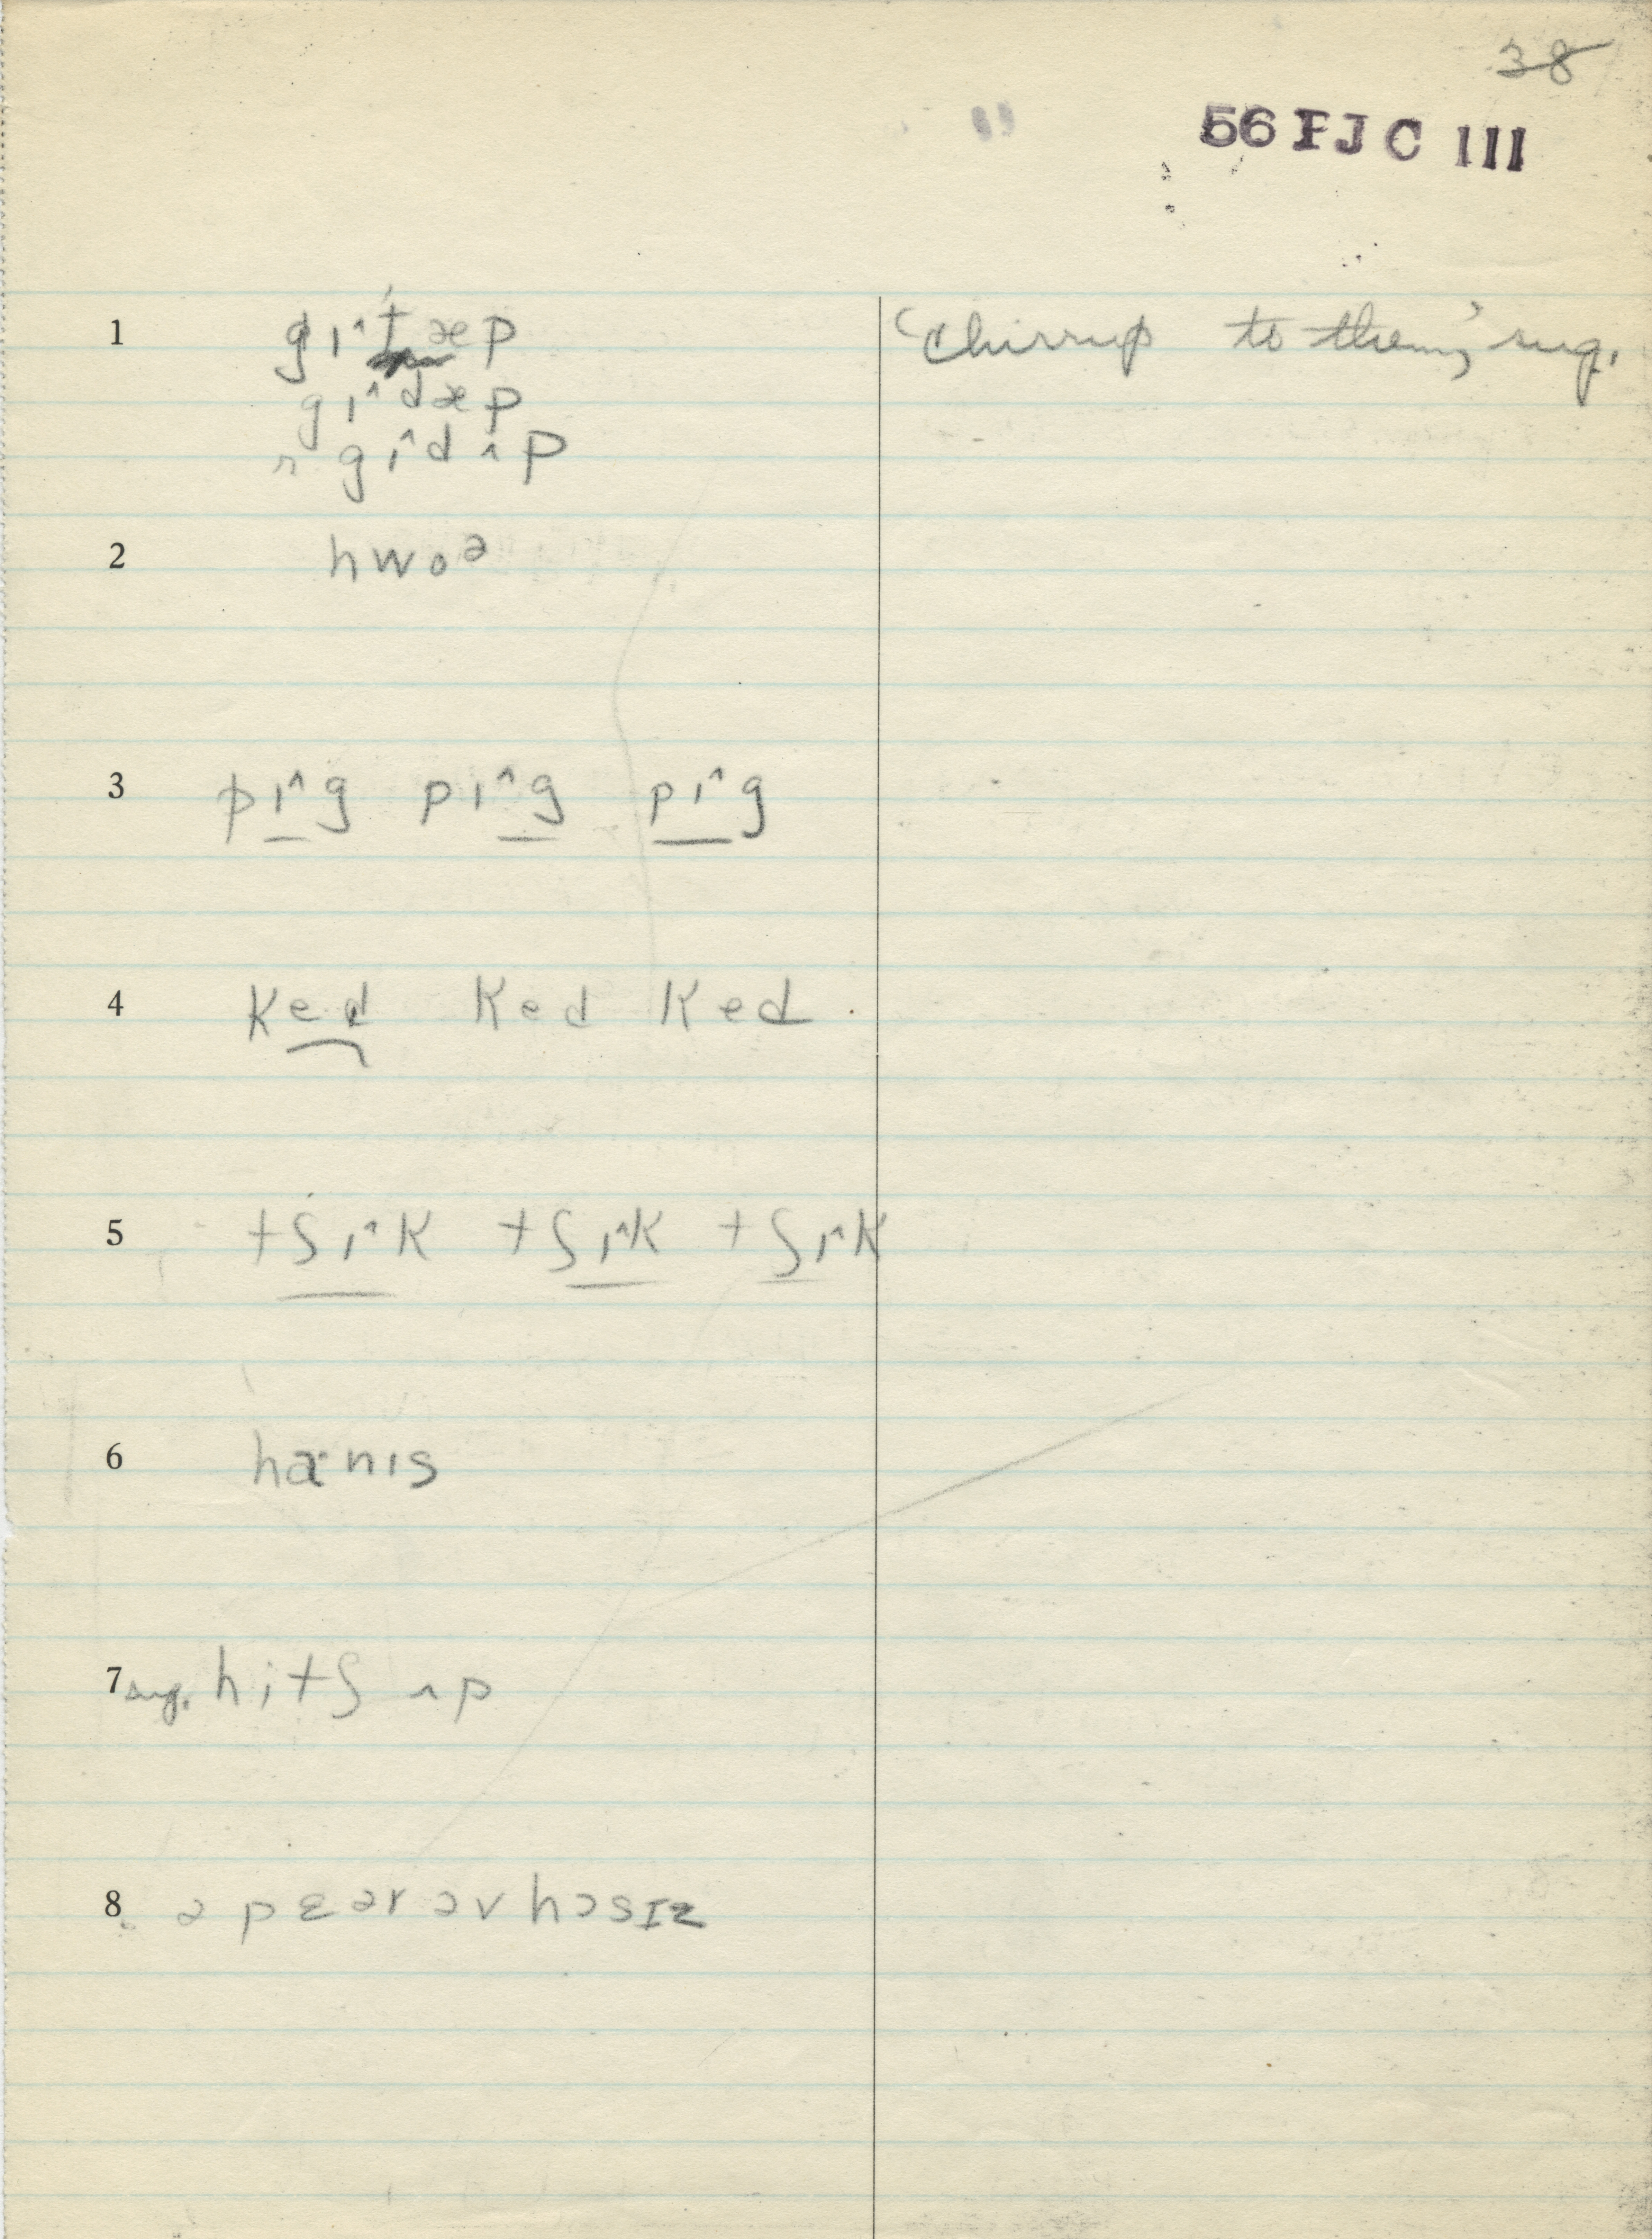 38
56 FJC III
1 gɪ^t̬æp ‘Chirrup to them,’ sug.
gɪ^dæp
gɪ^dʌp
2 hwoᵊ
3 pɪ^g pɪ^g pɪ^g
4 Ked Ked Ked
5 tʃɪ^K tʃɪ^K tʃɪ^K
6 hænɪs
7 sug. hitʃ ʌp
8 ə pɛər əv hɔsɪz